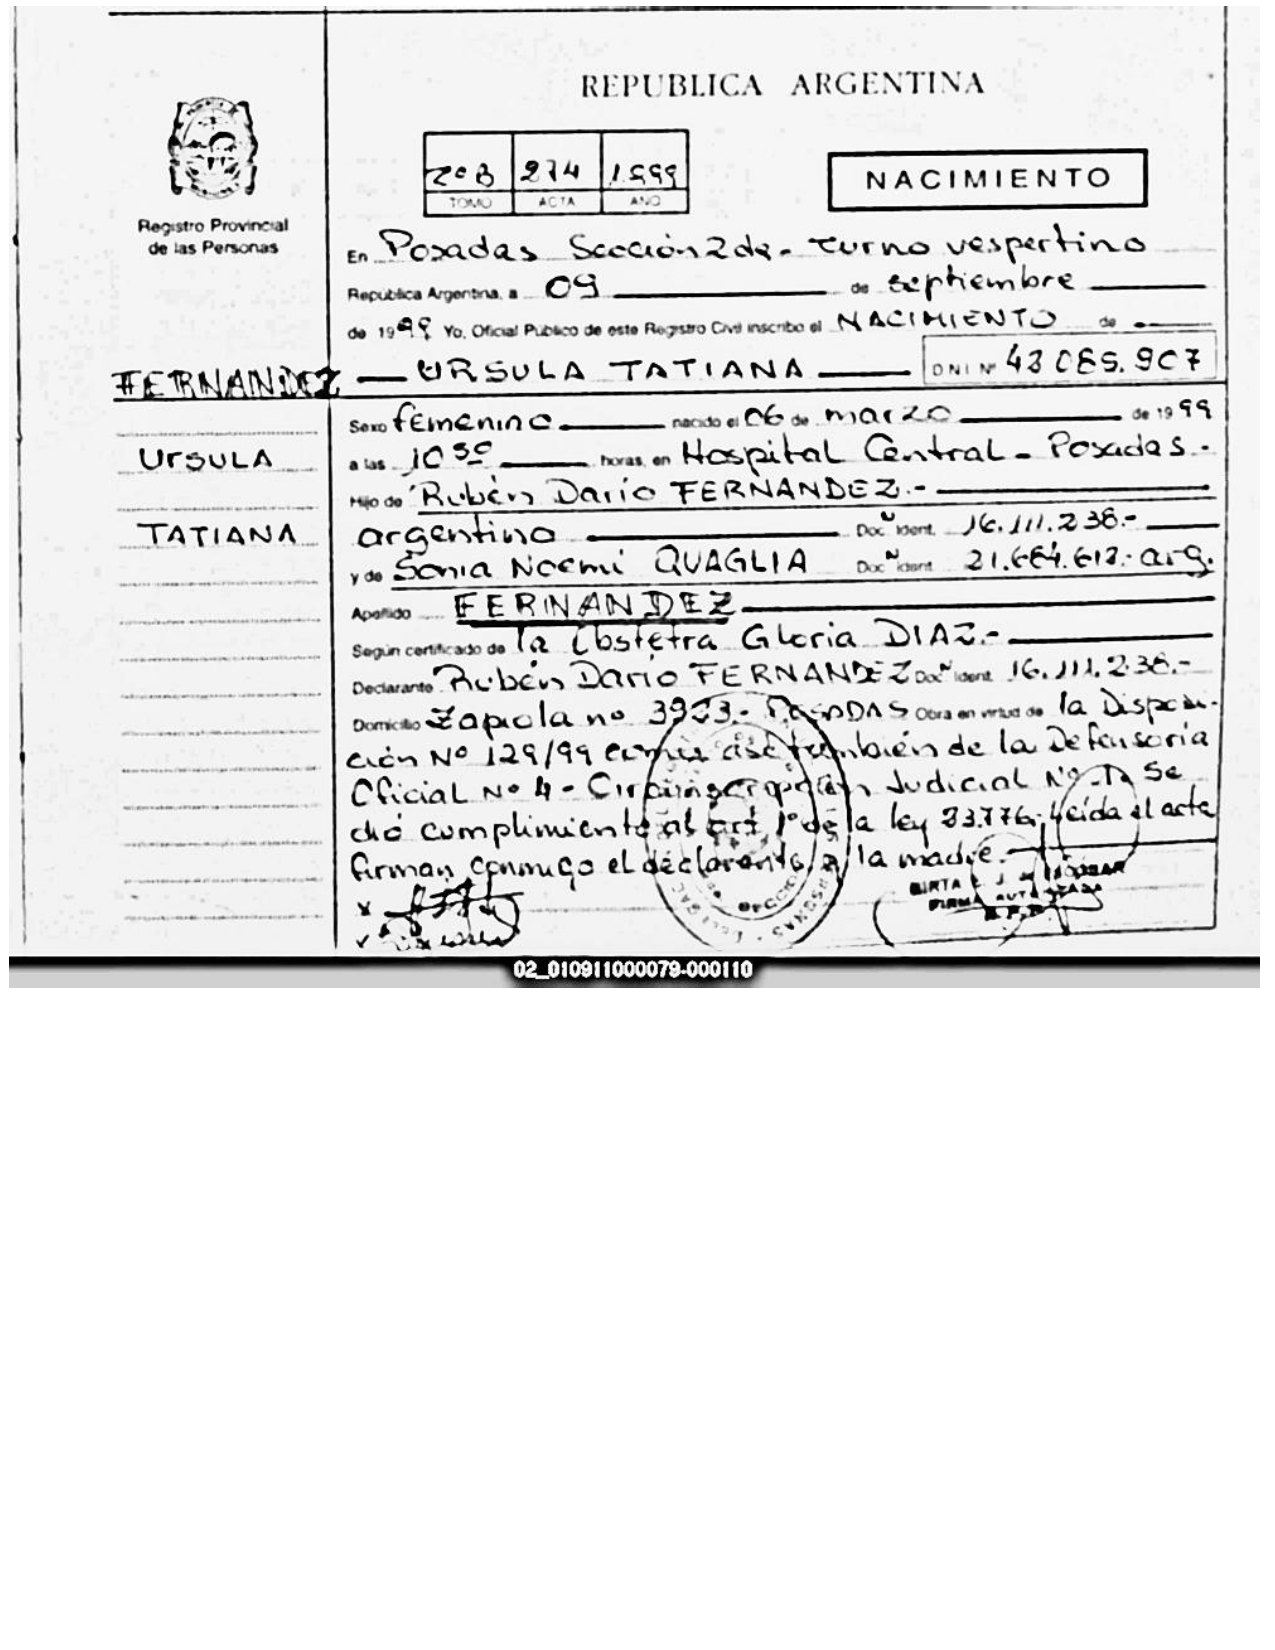 REPUBLICA ARGENTINA
2º B 274 1.999
TOMO ACTA AÑO
NACIMIENTO
Registro Provincial
de las Personas
En Posadas Sección 2da - turno vespertino
República Argentina, a 09 de septiembre
de 1999 Yo, Oficial Público de este Registro Civil inscribo el NACIMIENTO de
FERNANDEZ — URSULA TATIANA — DNI Nº 43 085.907
Sexo femenino nacido el 06 de marzo de 1999
URSULA
a las 10 30 horas, en Hospital Central - Posadas.-
Hijo de Rubén Darío FERNANDEZ.-
TATIANA
argentino Doc. Ident. 16.111.238.-
y de Sonia Noemi QUAGLIA Doc. Ident. arg.
Apellido FERNANDEZ
Según certificado de la Obstetra Gloria DIAZ.-
Declarante Rubén Darío FERNANDEZ Doc. Ident. 16.111.238.-
Domicilio Zapiola no POSADAS Obra en virtud de la Disposi-
ción Nº 129/99 como así también de la Defensoría
Oficial Nº 4 - Circunscripción Judicial Nº 1. Se
dió cumplimiento al art 1º de la ley 23.776; Leída el acta
firman conmigo el declarante y la madre.
FIRMA AUTORIZADA
02_010911000079-000110